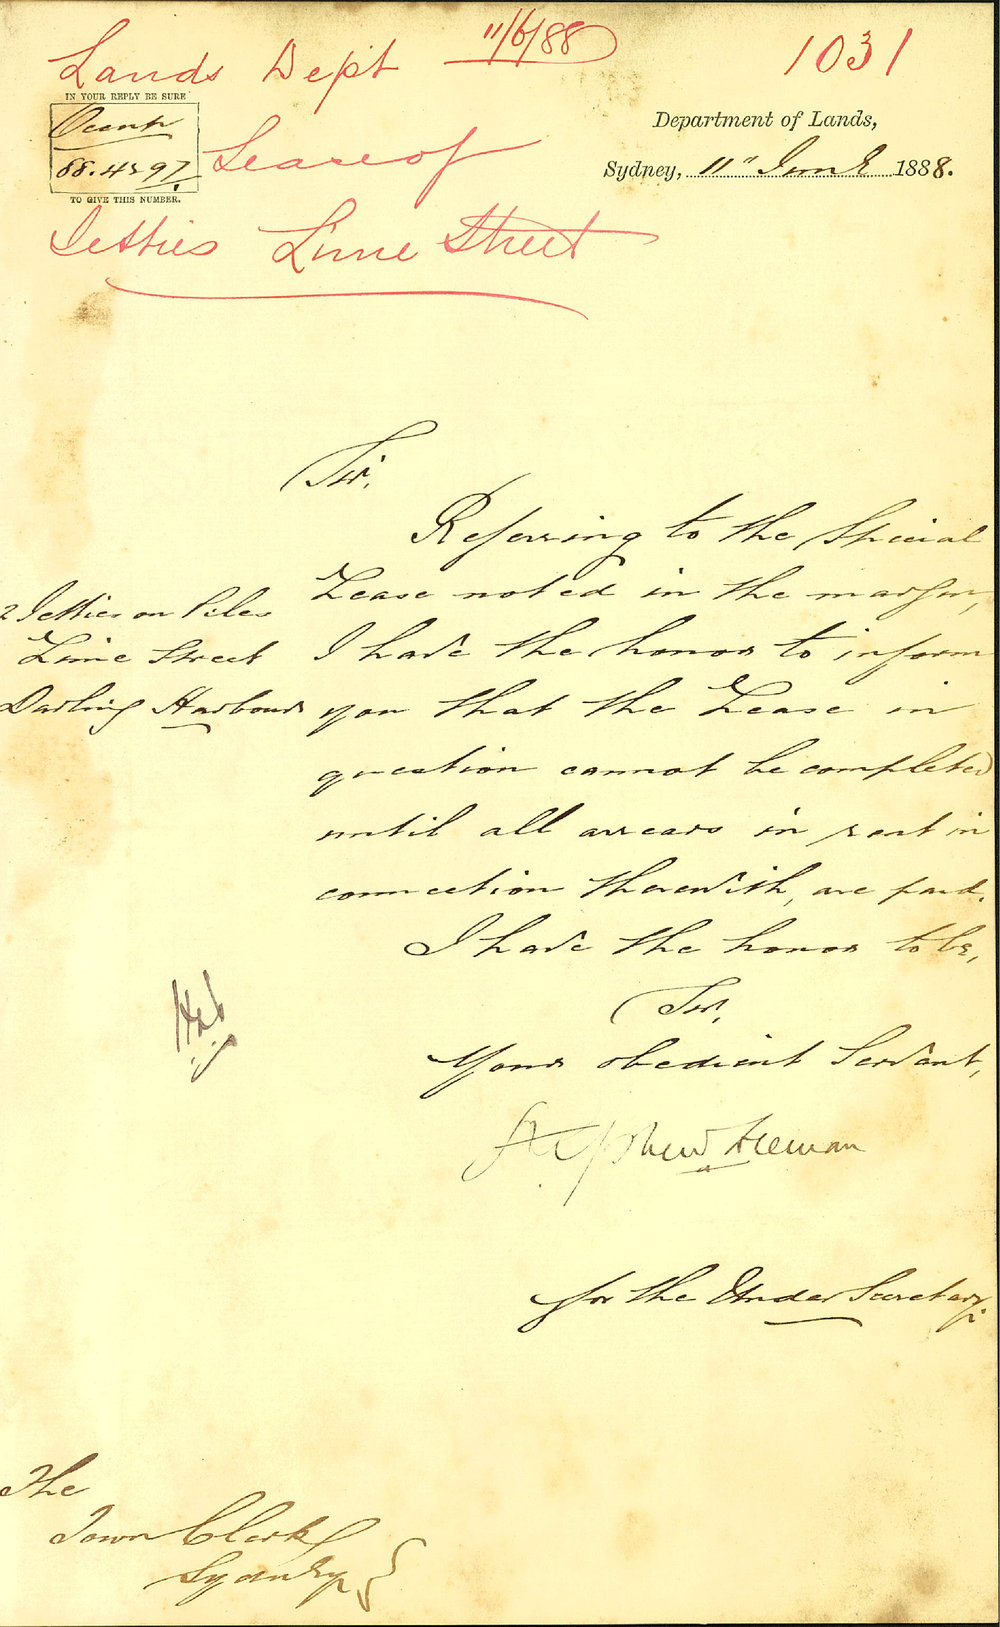 Lands Dept 11/6/88 1031
IN YOUR REPLY BE SURE
Occptn
88.4297.
TO GIVE THIS NUMBER.
Lease of
Jetties Lime Street
Department of Lands,
Sydney, 11" June 1888.
Sir,
Referring to the Special
Lease noted in the margin,
2 Jetties on Piles
Lime Street
Darling Harbour
I have the honor to inform
you that the Lease in
question cannot be completed
until all arrears in rent in
connection therewith, are paid.
I have the honor to be,
Sir,
Your obedient Servant,
Stephen Freeman
for the Under Secretary.
The
Town Clerk
Sydney